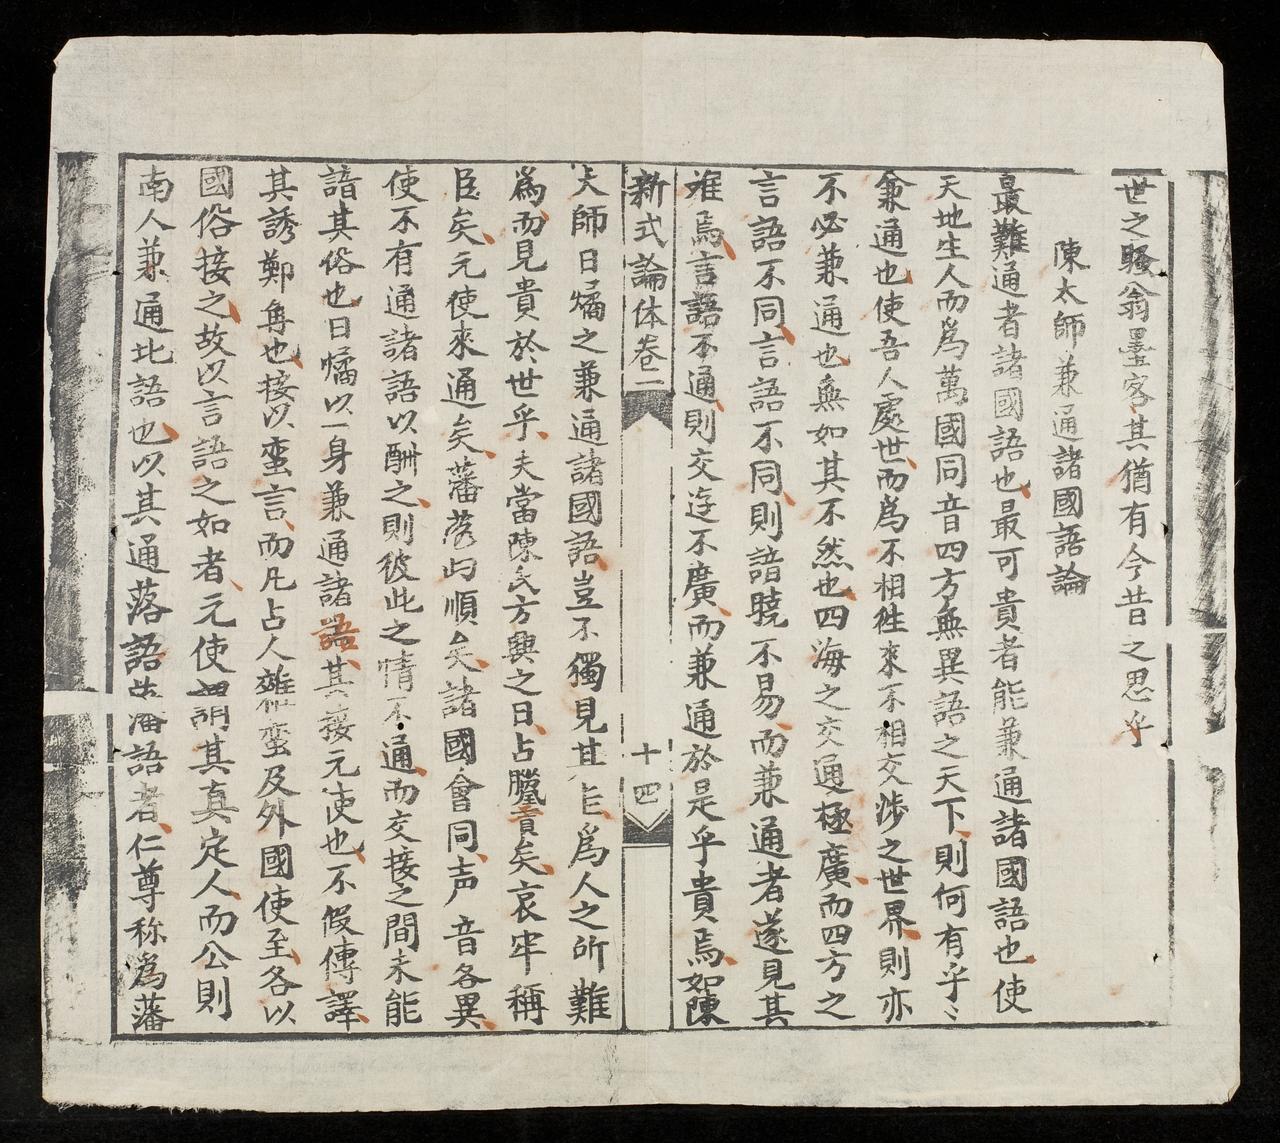 世之騷翁墨客其猶有今昔之思乎
陳太師兼通諸國語論
最難通者諸國語也最可貴者能兼通諸國語也使
天地生人而為萬國同音四方無異語之天下則何有乎〻
兼通也使吾人處世而為不相徃來不相交涉之世界則亦
不必兼通也無如其不然也四海之交通極廣而四方之
言語不同言語不同則諳曉不易而兼通者遂見其
难焉言語不通則交遊不廣而兼通於是乎貴焉如陳
新式論体卷二
十四
太師日燏之兼通諸國語豈不獨見其能為人之所難
為而見貴於世乎夫當陳氏方興之日占臘貢矣哀牢稱
臣矣元使來通矣藩落向順矣諸國會同声音各異
使不有通諸語以酬之則彼此之情不通而交接之間未能
諳其俗也日燏以一身兼通諸語其接元使也不假傳譯
其誘鄭角也接以蛮言而凡占人雜蛮及外國使至各以
國俗接之故以言語之如者元使謂其真定人而公則
南人兼通北語也以其通落語藩語者仁尊称為藩